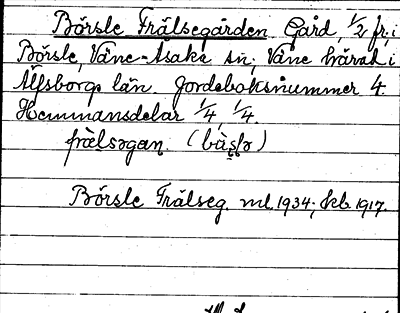 Börsle Frälsegården Gård, 1/2 fr, i
Börsle, Väne-Åsaka sn, Väne härad i
Älfsborgs län. Jordeboksnummer 4.
Hemmansdelar 1/4, 1/4.
frælsəgan. (bàslə)
Börsle Frälseg. ml. 1934; Ekb. 1917.